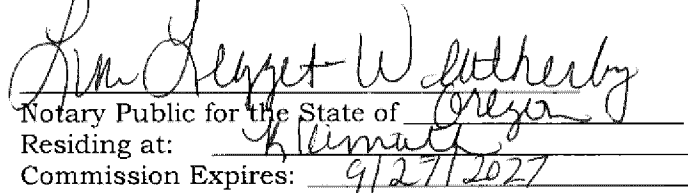 Lisa Legget Weatherby
Notary Public for the State of Oregon
Residing at: Klamath
Commission Expires: 9/27/2027